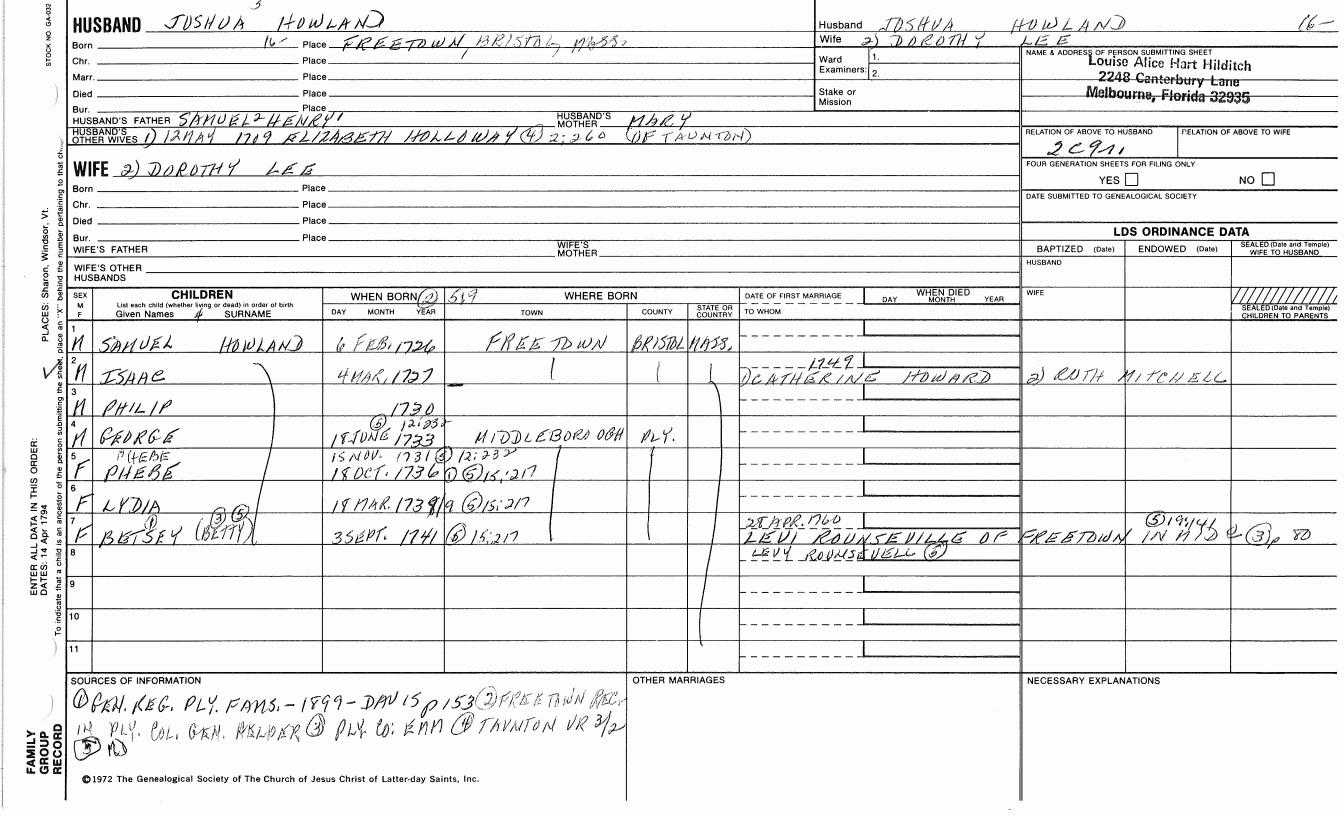 STOCK NO. GA-032
HUSBAND JOSHUA 3 HOWLAND
Born 16- Place FREETOWN, BRISTOL, MASS.
Chr. Place
Marr. Place
Died Place
Bur. Place
HUSBAND'S FATHER SAMUEL 2 HENRY 1 HUSBAND'S MOTHER MARY
HUSBAND'S OTHER WIVES 1) 12 MAY 1709 ELIZABETH HOLLOWAY (4) 2:260 (OF TAUNTON)
Husband JOSHUA HOWLAND 16-
Wife 2) DOROTHY LEE
Ward 1.
Examiners: 2.
Stake or Mission
NAME & ADDRESS OF PERSON SUBMITTING SHEET
Louise Alice Hart Hilditch
2248 Canterbury Lane
Melbourne, Florida 32935
RELATION OF ABOVE TO HUSBAND RELATION OF ABOVE TO WIFE
FOUR GENERATION SHEETS FOR FILING ONLY
YES NO
DATE SUBMITTED TO GENEALOGICAL SOCIETY
WIFE 2) DOROTHY LEE
Born Place
Chr. Place
Died Place
Bur. Place
WIFE'S FATHER WIFE'S MOTHER
WIFE'S OTHER HUSBANDS
LDS ORDINANCE DATA
BAPTIZED (Date) ENDOWED (Date) SEALED (Date and Temple) WIFE TO HUSBAND
HUSBAND
WIFE
SEALED (Date and Temple) CHILDREN TO PARENTS
SEX M F
CHILDREN
List each child (whether living or dead) in order of birth
Given Names 4 SURNAME
WHEN BORN (2) 519 WHERE BORN
DAY MONTH YEAR TOWN COUNTY STATE OR COUNTRY
DATE OF FIRST MARRIAGE
TO WHOM
WHEN DIED
DAY MONTH YEAR
1 M SAMUEL HOWLAND 6 FEB. 1726 FREETOWN BRISTOL MASS.
2 M ISAAC 4 MAR. 1727 1749 1) CATHERINE HOWARD 2) RUTH MITCHELL
3 M PHILIP 1730
4 M GEORGE 18 JUNE 1733 (5) 12:232 MIDDLEBOROUGH PLY.
5 PHEBE 15 NOV. 1731 (5) 12:232
F PHEBE 18 OCT. 1736 (1) (5) 15:217
6 F LYDIA 18 MAR. 1738/9 (5) 15:217
7 F BETSEY (1) (BETTY) (3) (5) 3 SEPT. 1741 (5) 15:217 28 APR. 1760
LEVI ROUNSEVILLE OF FREETOWN IN MID (5) 19:141 (3) p 80
8 LEVY ROUNSEVELL (5)
9
10
11
SOURCES OF INFORMATION
(1) GEN. REG. PLY. FAMS. - 1899 - DAVIS p 153 (2) FREETOWN REC.
IN PLY. COL. GEN. HELPER (3) PLY. CO. EMM (4) TAUNTON VR 3/2
(5) MD
OTHER MARRIAGES
NECESSARY EXPLANATIONS
©1972 The Genealogical Society of The Church of Jesus Christ of Latter-day Saints, Inc.
FAMILY GROUP RECORD
ENTER ALL DATA IN THIS ORDER:
DATES: 14 Apr 1794
PLACES: Sharon, Windsor, Vt.
To indicate that a child is an ancestor of the person submitting the sheet, place an "X" behind the number pertaining to that